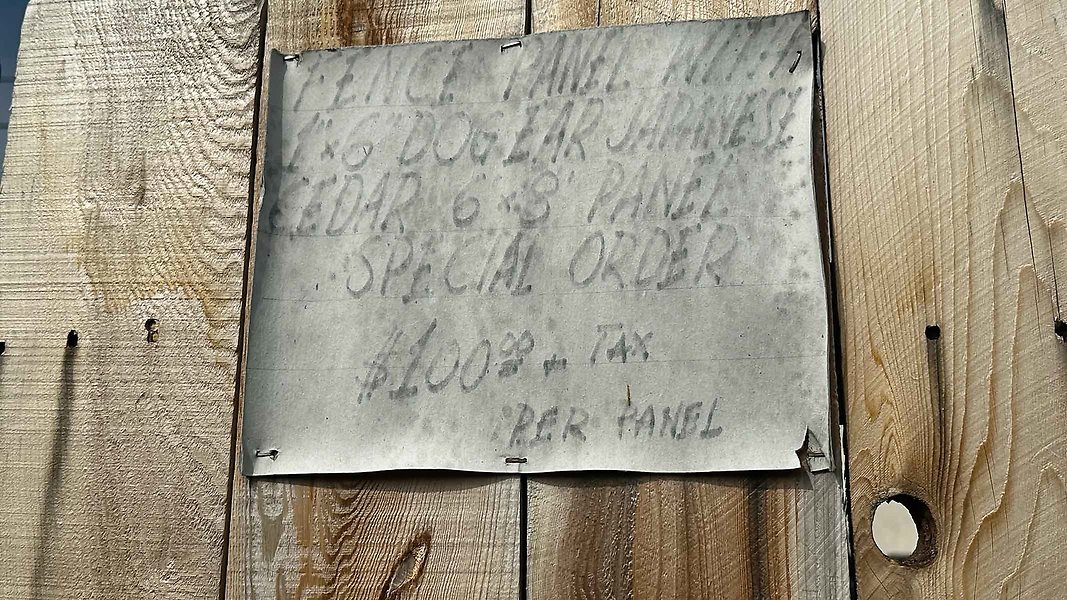 FENCE PANEL WITH
1"x6" DOG EAR JAPANESE
CEDAR 6'x8' PANEL
SPECIAL ORDER
$100.00 + TAX
PER PANEL